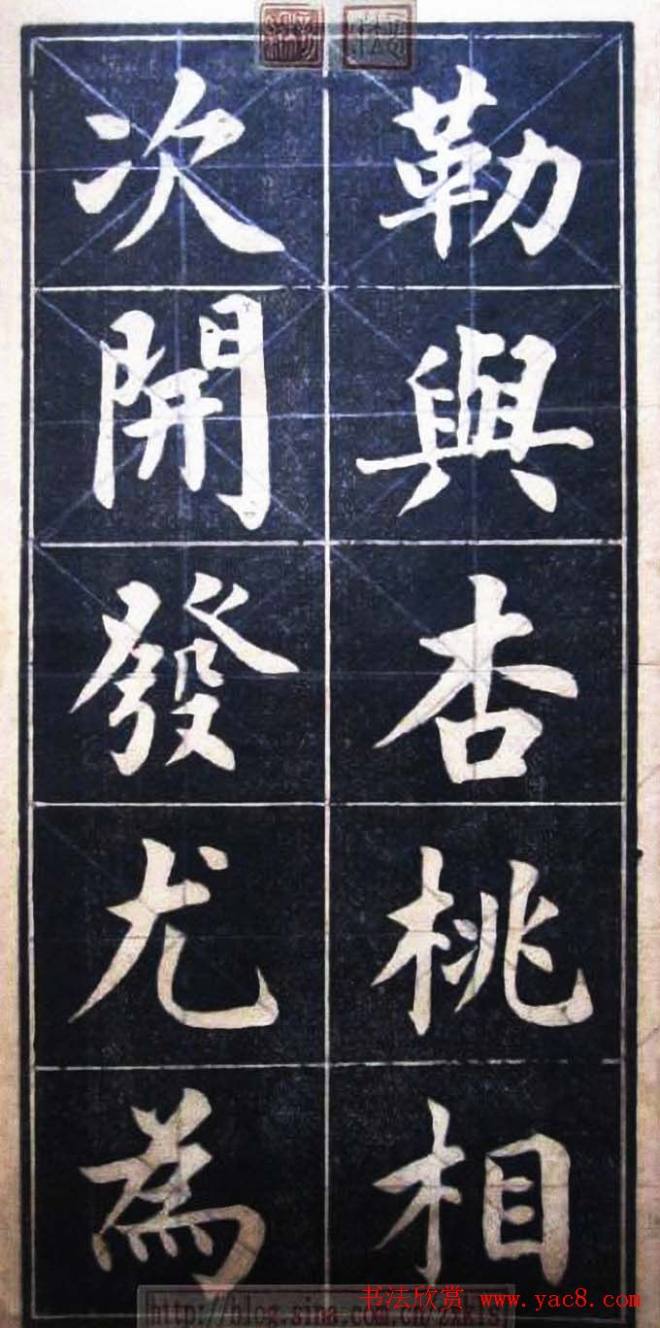 勒與杏桃相
次開發尤為
http://blog.sina.com.cn/zxkis
书法欣赏 www.yac8.com